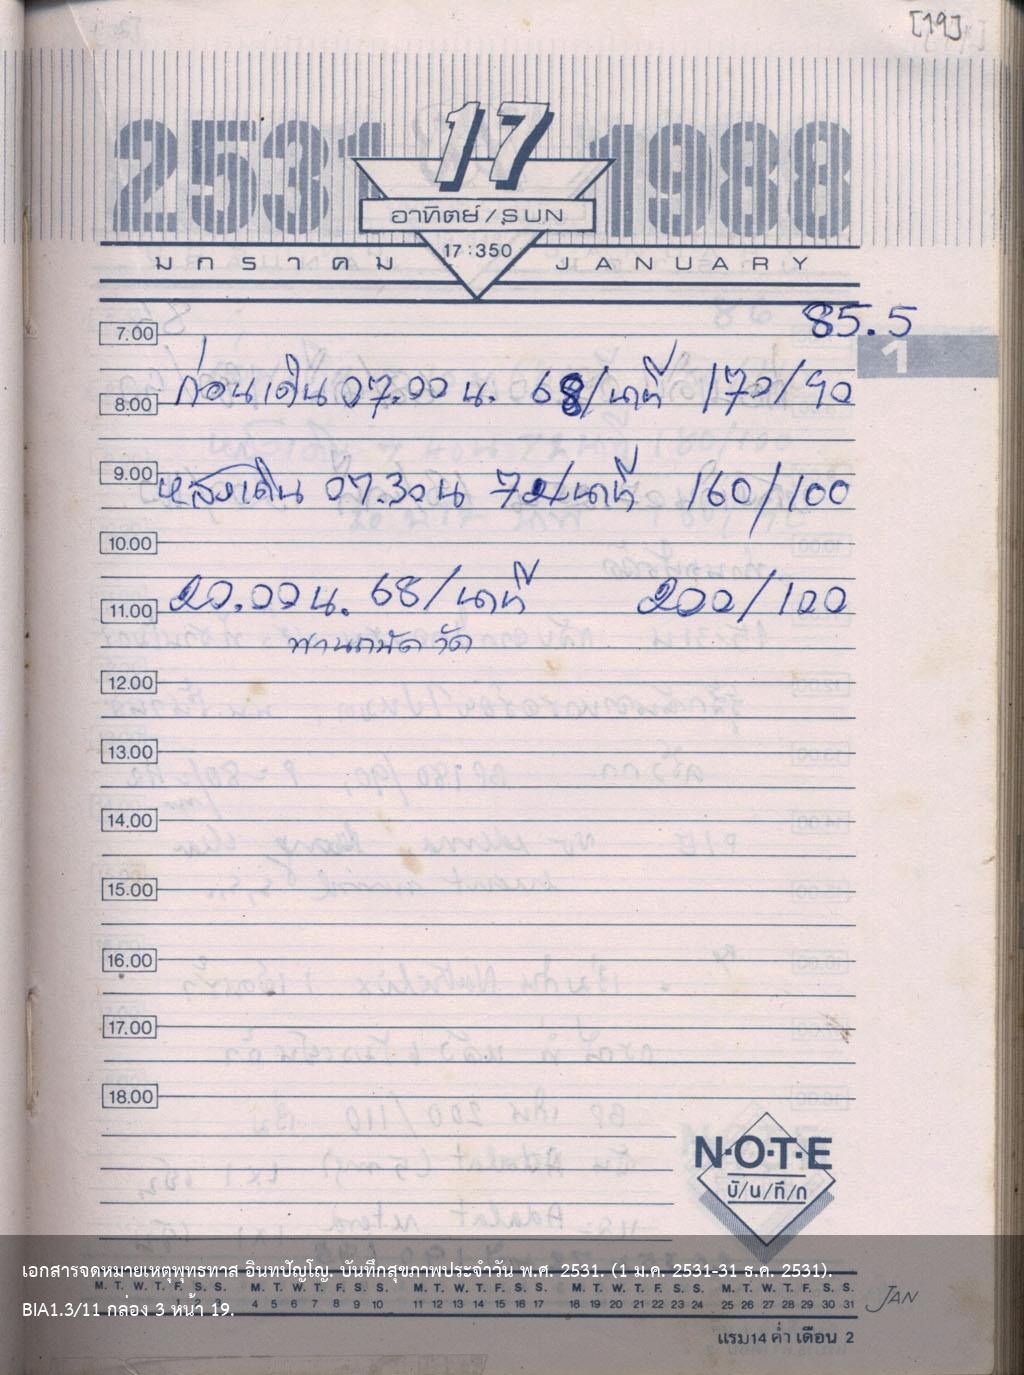 [19]
2531 17 1988
อาทิตย์/SUN
17:350
มกราคม JANUARY
85.5
7.00
1
ก่อนเดิน 07.00 น. 68/นาที 170/90
8.00
9.00
หลังเดิน 07.30 น 72/นาที 160/100
10.00
20.00 น. 68/นาที 200/100
11.00
พานถนัด วัด
12.00
13.00
14.00
15.00
16.00
17.00
18.00
N·O·T·E
บั/น/ทึ/ก
เอกสารจดหมายเหตุพุทธทาส อินทปัญโญ. บันทึกสุขภาพประจำวัน พ.ศ. 2531. (1 ม.ค. 2531-31 ธ.ค. 2531).
M. T. W. T. F. S. S. M. T. W. T. F. S. S. M. T. W. T. F. S. S. M. T. W. T. F. S. S. M. T. W. T. F. S. S.
BIA1.3/11 กล่อง 3 หน้า 19.
1 2 3 4 5 6 7 8 9 10 11 12 13 14 15 16 17 18 19 20 21 22 23 24 25 26 27 28 29 30 31 JAN
แรม14 ค่ำ เดือน 2